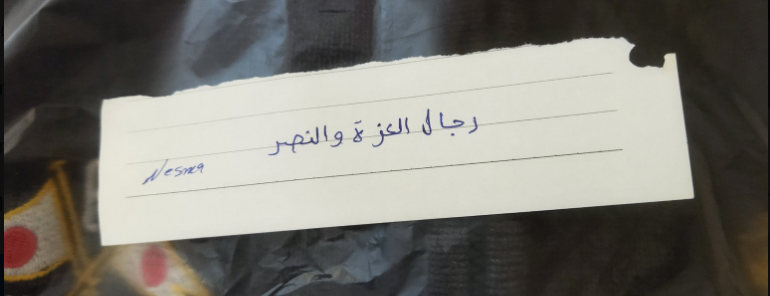 رجال العزة والنصر
Nesma